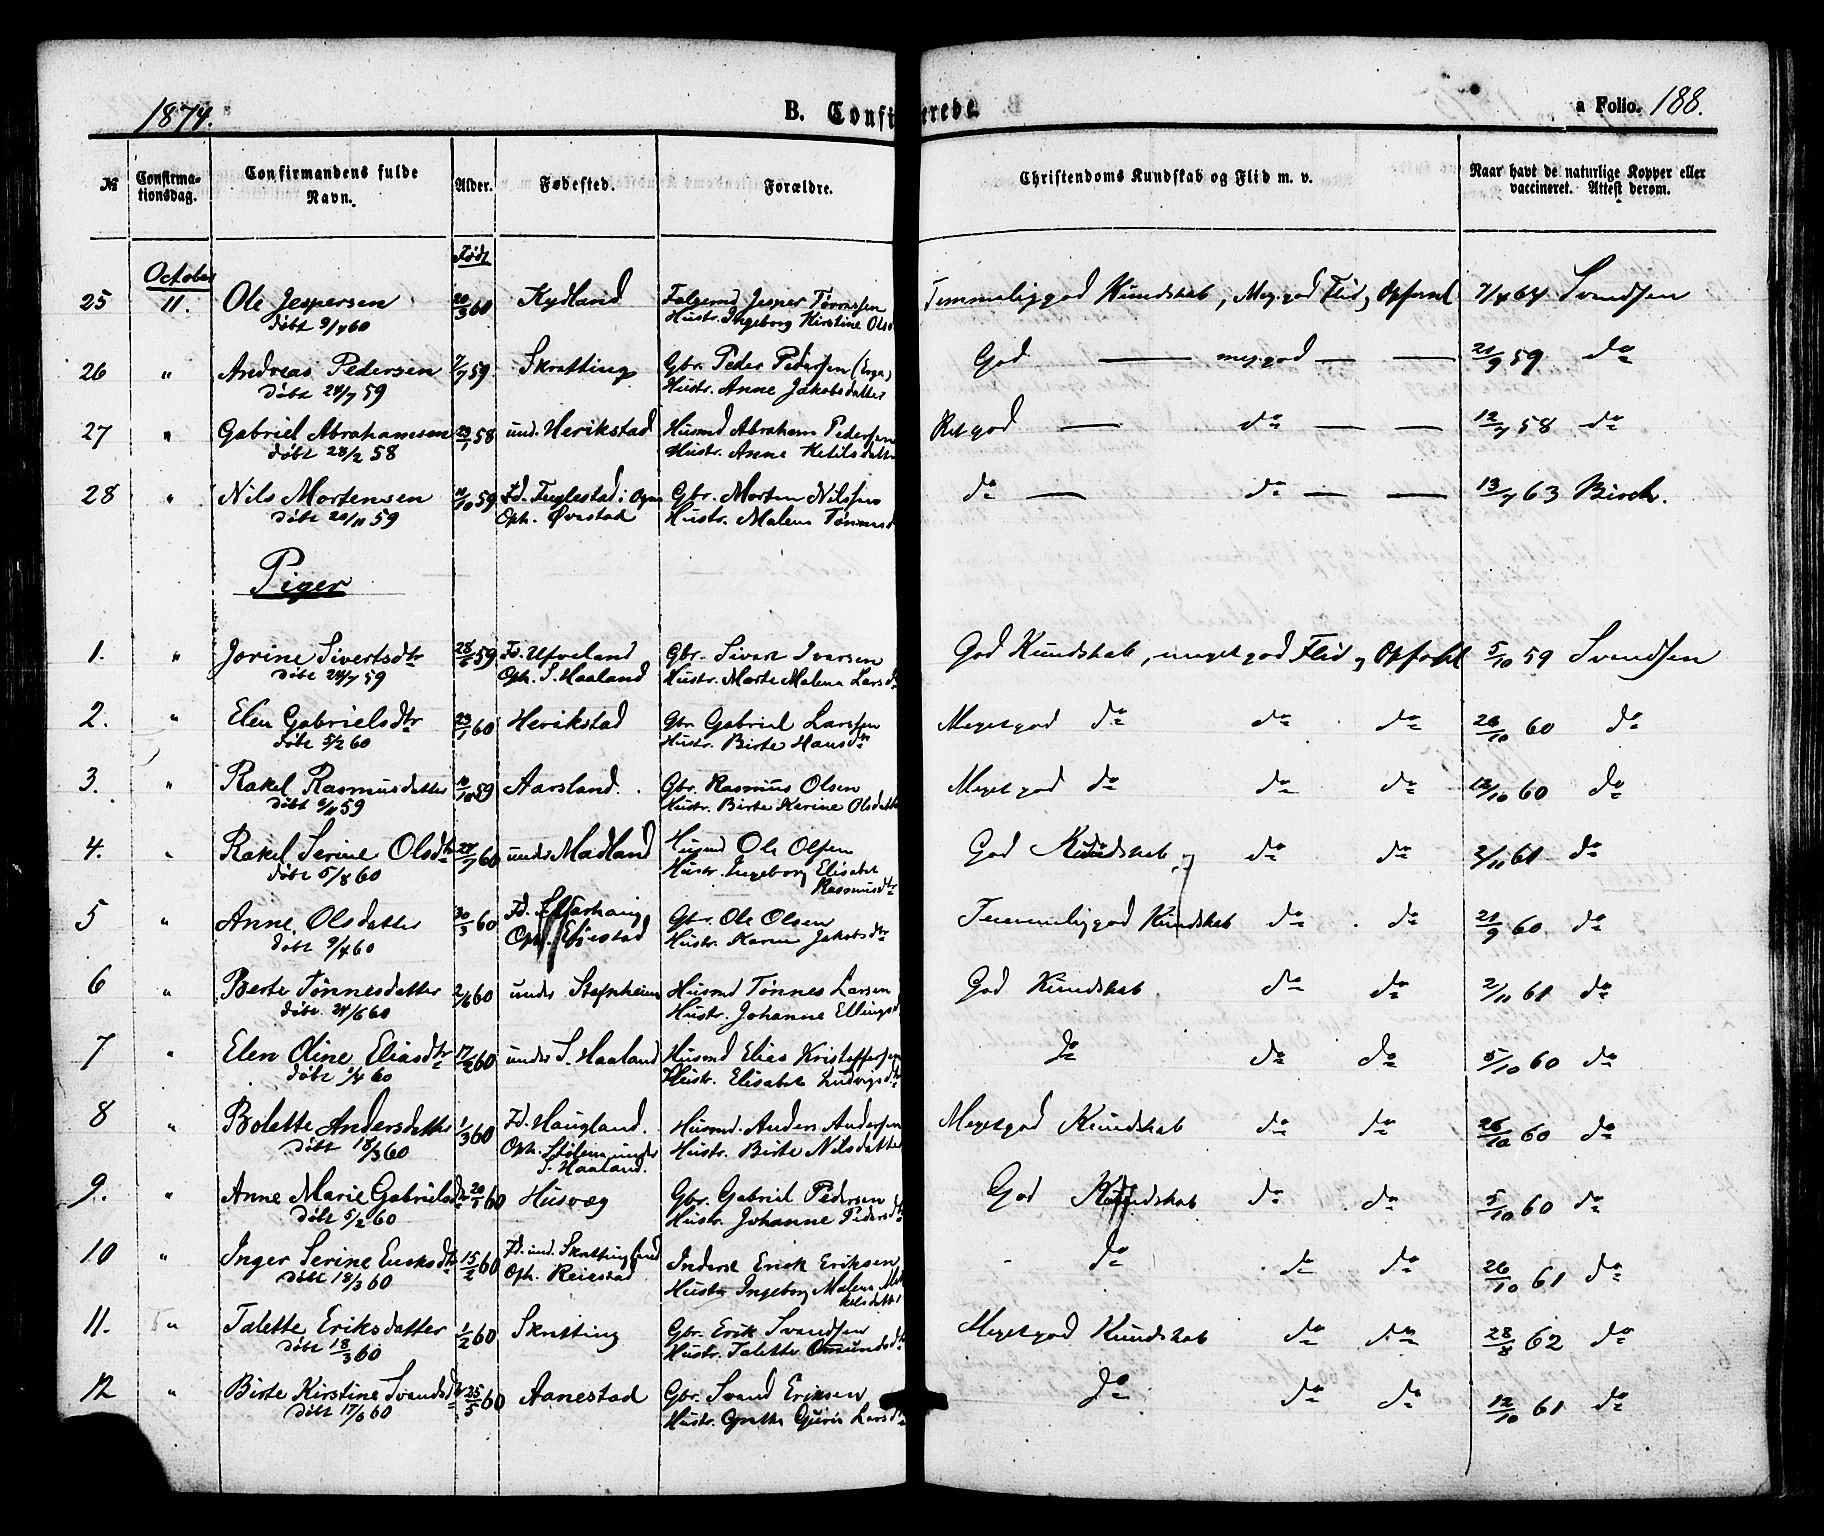 1874.
B. Confirmerede.
a Folio. 188.
№ Confirmationsdag. Confirmandens fulde Navn. Alder. Fødested. Forældre. Christendoms Kundskab og Flid m. v. Naar havt de naturlige Kopper eller vaccineret. Attest derom.
Født
October
25 11. Ole Jespersen 20/3 60 Kydland Jesper Tørresen Temmelig god Kundskab, Meg. god Flid og Opførsel 7/4 64 Svendsen
døbt 9/4 60 Hustr. Ingeborg Kirstine Olsd
26 " Andreas Pedersen 7/7 59 Skretting Gbr. Peder Pedersen God — meg. god — — 21/9 59 do
døbt 24/7 59 Hustr. Anne Jakobsdatter
27 " Gabriel Abrahamsen 58 und. Herikstad Husmd Abraham Pedersen Ret god — do — — 12/7 58 do
døbt 28/2 58 Hustr. Anne Ketilsdatt
28 " Nils Mortensen 11/10 59 Fd. Fuglestad i Ogn Gbr. Morten Nilssen do — do — — 13/7 63 Birch.
døbt 20/11 59 Oph. Øvestad Hustr. Malena Tønnesd
Piger
1. " Jorine Sivertsdtr 28/6 59 Fd. Ueland Gbr. Sivert Ivarsen God Kundskab, meget god Flid og Opførsel 5/10 59 Svendsen
døbt 24/7 59 Oph. S. Haaland Hustr. Marte Malena Larsd
2. " Elen Gabrielsdtr 23/1 60 Herikstad Gbr Gabriel Larssen Meget god do do do 26/10 60 do
døbt 5/2 60 Hustr. Birte Hansdtr
3. " Rakel Rasmusdatter 10/10 59 Aarsland. Gbr. Rasmus Olsen Meget god do do do 12/10 60 do
døbt 6/11 59 Hustr. Birte Karine Olsdatt
4. " Rakel Serine Olsdtr 24/7 60 under Madland Husmd Ole Olsen God Kundskab do do 2/11 61 do
døbt 5/8 60 Hustr. Ingeborg Elisabet
Rasmusdtr
5 " Anne Olsdatter 30/3 60 Fd. Gbr. Ole Olsen Temmelig god Kundskab do do 21/9 60 do
døbt 9/4 60 Oph. Hustr. Karen Jakobsdtr
6 " Berte Tønnesdatter 2/6 60 under Stefnheim Husmd Tønnes Larsen God Kundskab do do 2/10 61 do
døbt 24/6 60 Hustr. Johanne Ellingsd
7 " Elen Oline Eliasdtr 17/2 60 under S. Haaland Husmd Elias Kristoffersen do do do 5/10 60 do
døbt 1/4 60 Hustr. Elisabet Ludvigsdtr
8 " Bolette Andersdatter 1/3 60 Fd. Haugland. Husmd. Anders Andersen Meget god Kundskab do do 26/10 60 do
døbt 18/3 60 Oph. Stølen under Hustr. Birte Nilsdatter
S. Haaland.
9. " Anne Marie Gabrielsd 20/1 60 Husvæg Gbr. Gabriel Pedersen God Kundskab do do 5/10 60 do
døbt 5/2 60 Hustr. Johanne Pedersdtr
10 " Inger Serine Eriksdtr 15/2 60 Fd. und. Skrettingland Inderst Erik Eriksen do do do 26/10 61 do
døbt 18/3 60 Oph. Reiestad Hustr Ingeborg Malena
11. " Talette Eriksdatter 1/2 60 Skretting Gbr. Erik Svendsen Meget god Kundskab do do 28/8 62 do
døbt 18/3 60 Hustr. Talette Omundsdtr
12 " Birte Kirstine Svendsd 25/5 60 Aanestad Gbr. Svend Eriksen do do do 12/10 61 do
døbt 17/6 60 Hustr. Gunhild Gurie Larsdtr